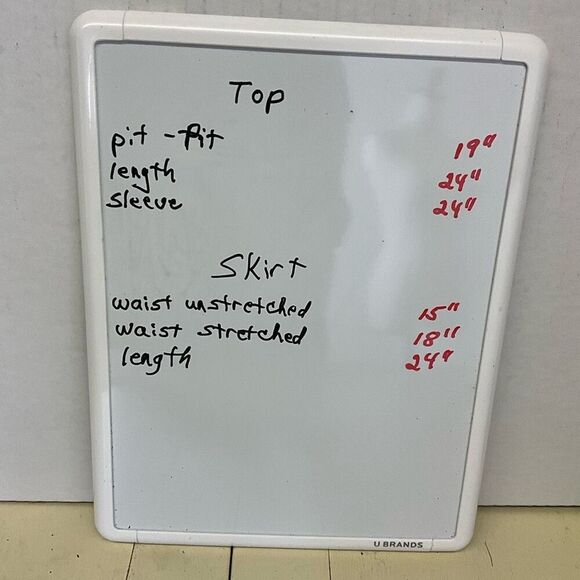 Top
pit - Pit 19"
length 24"
sleeve 24"
Skirt
waist unstretched 15"
waist stretched 18"
length 24"
U BRANDS